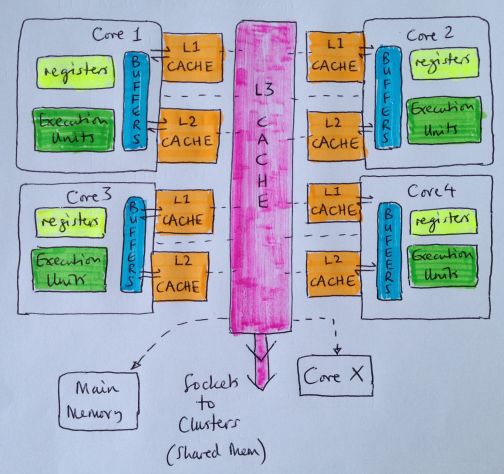 Core 1
registers
Execution
Units
BUFFERS
L1
CACHE
L2
CACHE
L3
CACHE
L1
CACHE
L2
CACHE
Core 2
BUFFERS
registers
Execution
Units
Core3
registers
Execution
Units
BUFFERS
L1
CACHE
L2
CACHE
L1
CACHE
L2
CACHE
Core4
BUFFEERS
registers
Execution
Units
Main
Memory
Sockets
to
Clusters
(Shared Mem)
Core X